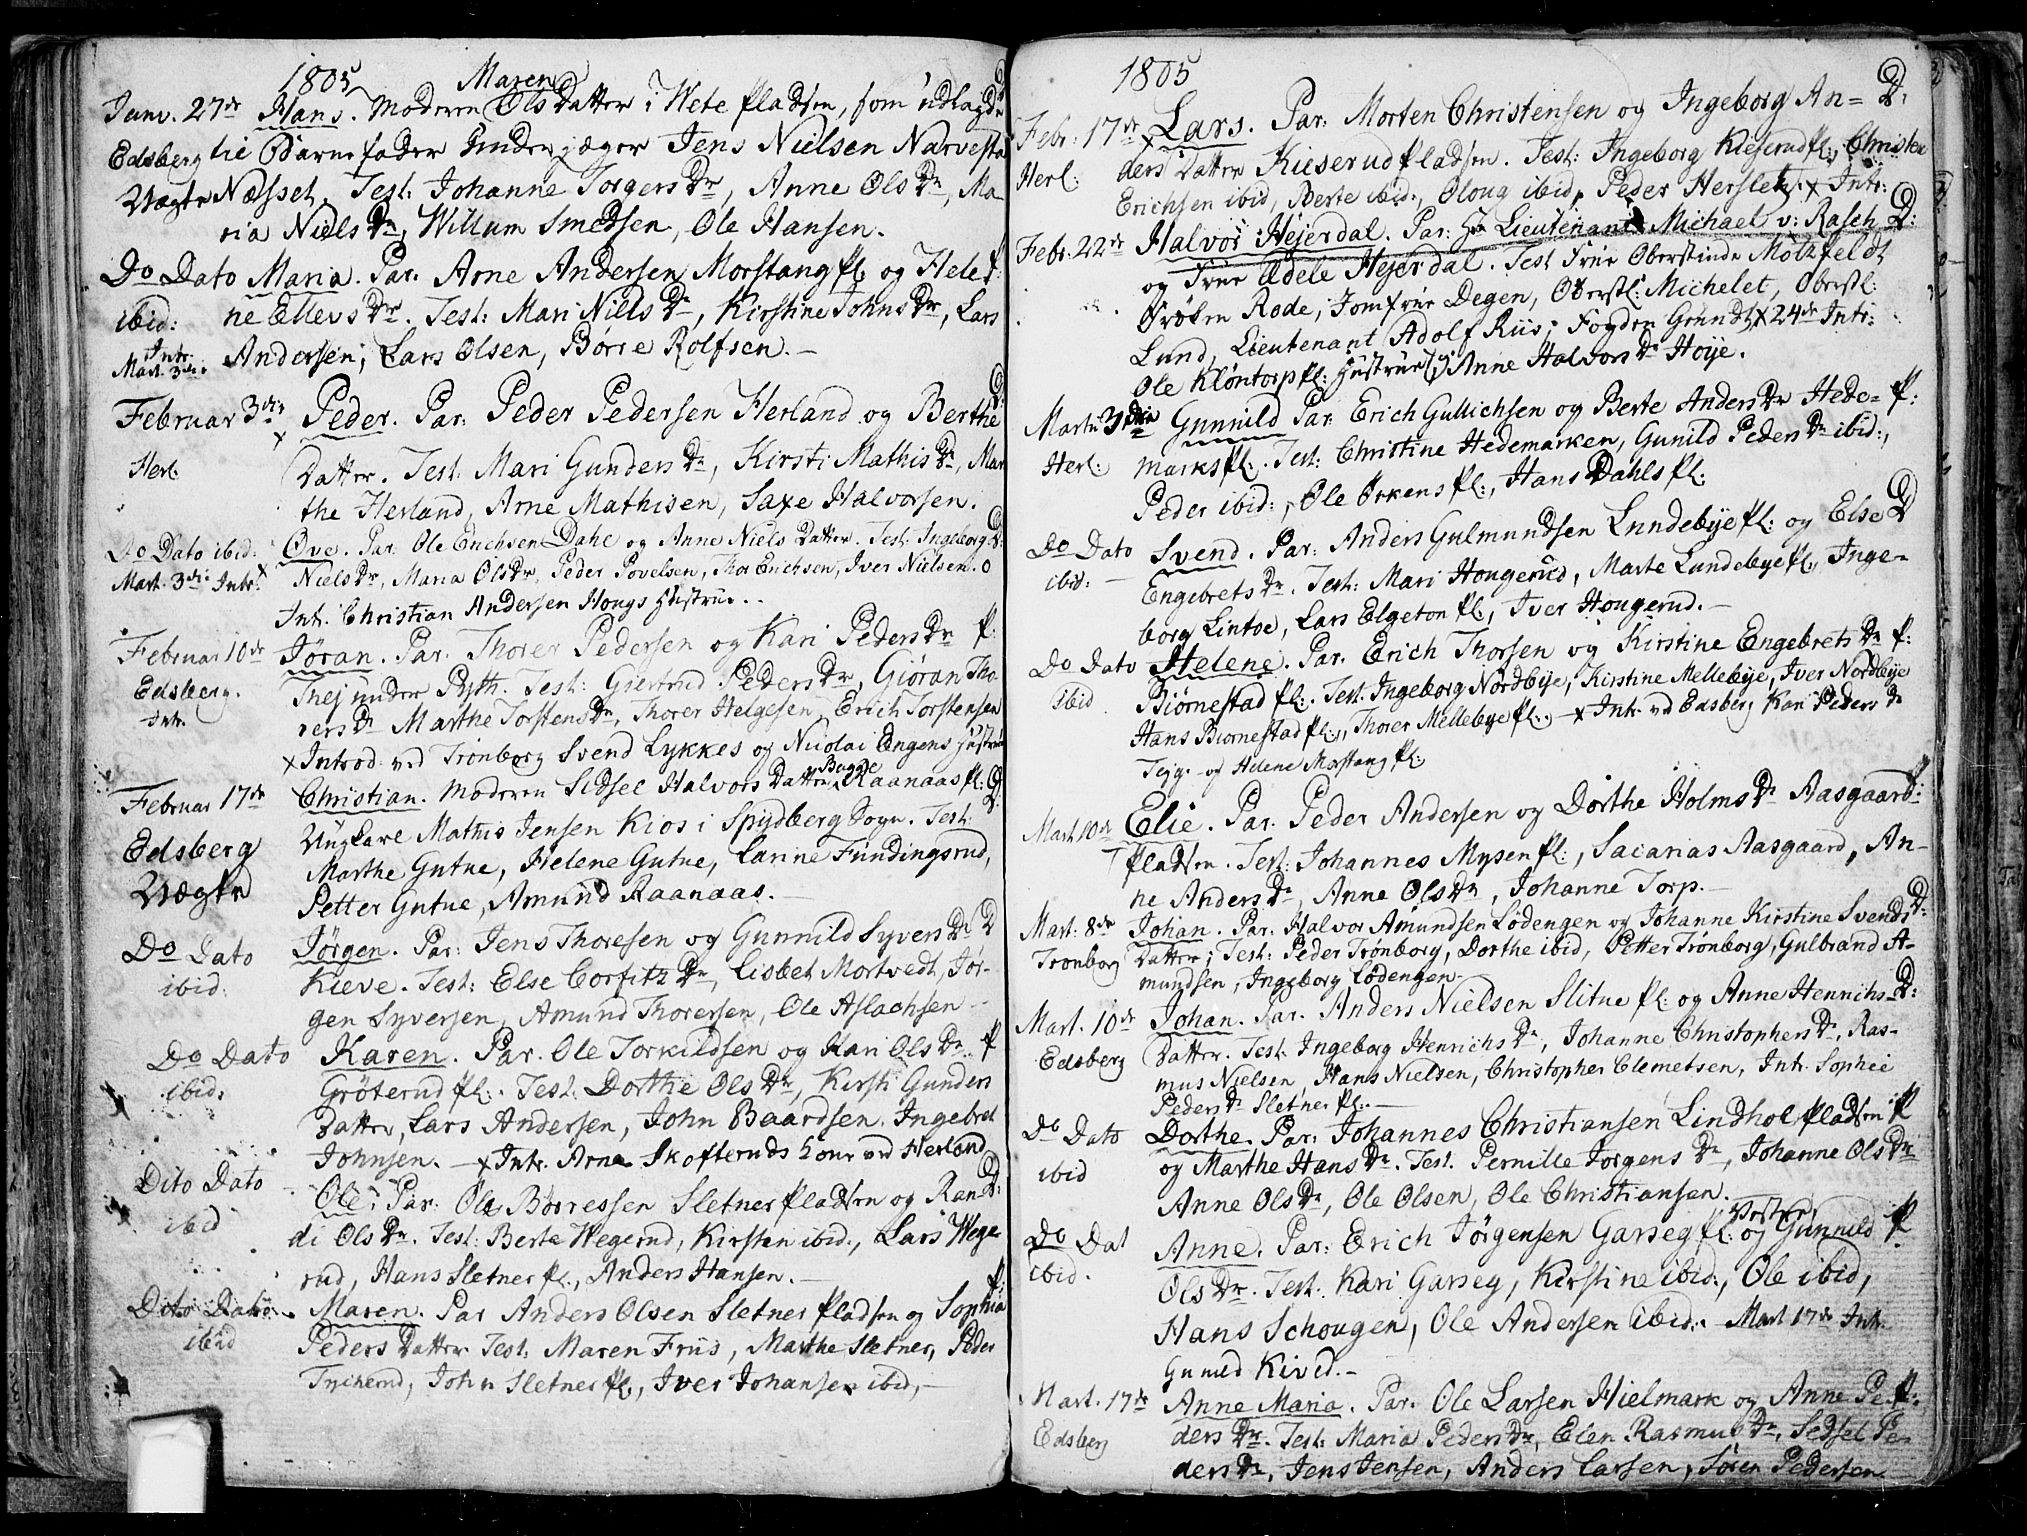 1805
Janv. 27de Hans. Moderen Maren Ols Datter i Wete Pladsen, som udlagde
Edsberg til Barne fader Under jæger Jens Nielsen Narvesta
Uægte Næsset. Test: Johanne Torgers Dr, Anne Ols Dr, Ma
ria Niels Dr, Willum Smedsen, Ole Hansen.
Do Dato Maria. Par. Arne Andersen Morstang Pl og Hele P:
ibid: ne Ellevs Dr. Test: Mari Niels Dr, Kirstine Johns Dr, Lars
Intr. Mart. 3die Andersen, Lars Olsen, Børre Rolfsen.—
Februar 3die Peder. Par. Peder Pedersen Herland og Berthe
Herl. Datter. Test: Mari Gunders Dr, Kirsti Mathis Dr, Mar
the Herland, Arne Mathisen, Saxe Halvorsen.
Do Dato ibid: Ove. Par. Ole Erichsen Dahl og Anne Niels Datter. Test. Ingeborg D:
Mart. 3die Intr. Niels Dr, Maria Ols Dr, Peder Povelsen, Thor Erichsen, Iver Nielsen.
Int. Christian Andersen Hougs Hustrue..
Februar 10de Jøran. Par. Thorer Pedersen og Kari Peders Dr P:
Edsberg. Thej under Pyth. Test: Giertrud Peders Dr, Giøran Tho
Intr. rers Dr Marthe Torstens Dr, Thorer Helgesen, Erich Torstensen
x Introd. ved Trønborg Svend Lykkes og Nicolai Engens Hustrue
Februar 17de Christian. Moderen Sidsel Halvors Datter Bugge Raanaas pl: D:
Edsberg Ungkare Mathis Jensen Kios i Spydberg Sogn. Test:
Uægte Marthe Gutue, Helene Gutue, Larine Fundingsrud,
Petter Gutue, Amund Raanaas.—
Do Dato Jørgen. Par: Jens Thoresen og Gunnild Syvers Dr D
ibid: Kieve. Test: Else Corfitz Dr, Lisbet Mortvedt, Jør-
gen Syversen, Amund Thorersen, Ole Aslachsen—
Do Dato Karen. Par. Ole Torkildsen og Kari Ols Dr. P
ibid: Grøterud pl:. Test: Dorthe Ols Dr, Kirsti Gunders
Datter, Lars Andersen, John Baardsen, Ingebret
Johnsen.—x Intr. Arne Skofteruds Kone ved Herland
Dito Dato Ole. Par: Ole Børressen Sletner Pladsen og Ran D:
ibid di Ols Dr. Test: Berte Wegerud, Kirsten ibid:, Lars Wege
rud, Hans Sletner pl., Anders Hansen.—
Dito Dato Maren. Par Anders Olsen Sletner Pladsen og Sophia P:
ibid Peders Datter Test: Maren Friis, Marthe Sletner, Peder
Trycherud, John Sletner pl, Iver Johansen ibid,—
1805
Febr: 17de Lars. Par: Morten Christensen og Ingeborg An= D:
Herl: ders Datter Kieserud Pladsen. Test: Ingeborg Kieserud pl:, Christen
Erichsen ibid, Berte ibid:, Oloug ibid, Peder Herslet. x Intr:
Febr. 22de Halvor Hejerdal. Par: Hr Lieutenant Michael v: Rasch D:
og Frue Adele Hejerdal. Test Frue Oberstinde Motzfeldt
Frøken Rode, Jomfrue Degen, Oberstl: Michelet, Oberstl:
Lund, Lieutenant Adolf Riis, Fogden Grundt, x 24de Intr:
Ole Kløntorp pl: Hustrue (og) Anne Halvors Dr Høije.
Martii 3die Gunnild Par: Erich Gullichsen og Berte Anders Dr Hede= P:
Herl: marks pl:. Test: Christine Hedemarken, Gunild Peders Dr ibid:,
Peder ibid:, Ole Ørkens pl:, Hans Dahls pl:
Do Dato Svend. Par: Anders Gulmundsen Lundebye pl: og Else D
ibid:— Engebrets Dr. Test: Mari Hougerud, Marte Lundebye pl:, Inge=
borg Lintoe, Lars Elgeton pl:, Iver Hougerud.—
Do Dato Helene. Par. Erich Thorsen og Kirstine Engebrets Dr P:
ibid Biørnestad pl:. Test: Ingeborg Nordbye, Kirstine Mellebye, Iver Nordbye
Hans Biørnestad pl:, Thorer Mellebye pl:.—x Intr. ved Edsberg Kari Peders Dr
Tejge og Helene Morstang pl:
Mart. 10de Elie. Par. Peder Andersen og Dorthe Holms Dr Aasgaard
Pladsen. Test: Johannes Mysen pl:, Sacarias Aasgaard, An-
ne Anders Dr, Anne Ols Dr, Johanne Torp.—
Mart: 8de Johan. Par. Halvor Amundsen Lødengen og Johanne Kirstine Svends D:
Trønborg Datter; Test: Peder Trønborg, Dorthe ibid, Petter Trønborg, Gulbrand A-
mundsen, Ingeborg Lødengen—
Mart. 10de Johan. Par. Anders Nielsen Slitue pl: og Anne Henrichs= D:
Edsberg Datter. Test. Ingeborg Henrichs Dr, Johanne Christophers Dr, Ras-
mus Nielsen, Hans Nielsen, Christopher Clemetsen, Intr. Sophie
Peders Dr Sletner pl:.—
Do Dato Dorthe. Par: Johannes Christiansen Lindhol Pladsen P
ibid og Marthe Hans Dr. Test. Pernille Jørgens Dr, Johanne Ols Dr
Anne Ols Dr, Ole Olsen, Ole Christiansen.
Do Dat Anne. Par: Erich Jørgensen Garseg pl: Vestre og Gunnild P
ibid. Ols Dr. Test. Kari Garseg, Kirstine ibid:, Ole ibid,
Hans Schougen, Ole Andersen ibid:. Mart 17de Intr.
Gunild Kived.—
Mart. 17de Anne Maria. Par. Ole Larsen Hielmark og Anne Pe- P:
Edsberg ders Dr. Test: Maria Peders Dr, Elen Rasmus Dr, Sidsel Pe-
ders Dr, Jens Jensen, Anders Larsen, Søren Pedersen